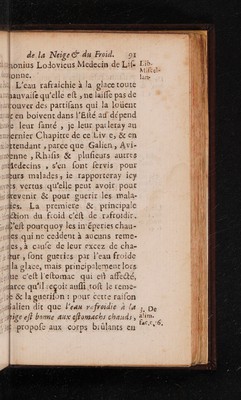 de la Neige & du Froid. 91
monius Lodovicus Medecin de Lis-
bonne.
L'eau rafraichie à la glace toute
mauvaise qu'elle est, ne laisse pas de
trouver des partisans qui la loüent
en boivent dans l'Esté au dépend
leur santé, je leur parleray au
dernier Chapitre de ce Livre, & en
attendant, parce que Galien, Avi-
cenne, Rhasis & plusieurs autres
Medecins, s'en sont servis pour
leurs malades, je rapporteray icy
les vertus qu'elle peut avoir pour
prevenir & pour guerir les mala-
dies. La premiere & principale
action du froid c'est de rafroidir.
C'est pourquoy les intéperies chau-
des qui ne cedent à aucuns reme-
des, à cause de leur excez de cha-
leur, sont gueries par l'eau froide
la glace, mais principalement lors
que c'est l'estomac qui est affecté,
parce qu'il reçoit aussi tost le reme-
de & la guerison : pour cette raison
Galien dit que l'eau refroidie à la
neige est bonne aux estomachs chauds,
propose aux corps brûlans en
Lib.
3. De
alim.